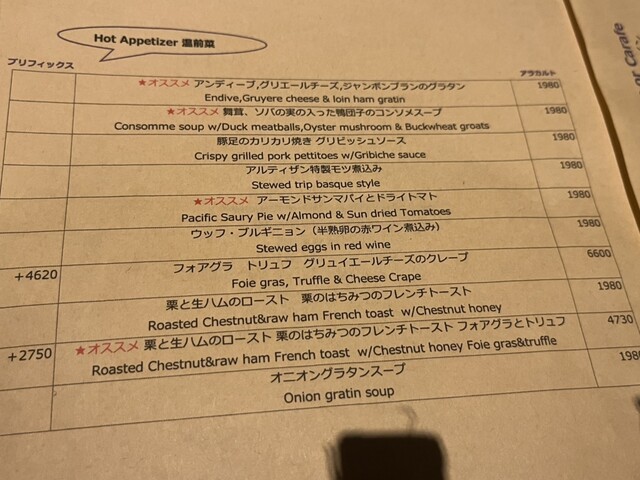 Hot Appetizer 温前菜
プリフィックス
アラカルト
★オススメ アンディーブ,グリエールチーズ,ジャンボンブランのグラタン 1980
Endive,Gruyere cheese & loin ham gratin
★オススメ 舞茸、ソバの実の入った鴨団子のコンソメスープ 1980
Consomme soup w/Duck meatballs,Oyster mushroom & Buckwheat groats
豚足のカリカリ焼き グリビッシュソース 1980
Crispy grilled pork pettitoes w/Gribiche sauce
アルティザン特製モツ煮込み 1980
Stewed trip basque style
★オススメ アーモンドサンマパイとドライトマト 1980
Pacific Saury Pie w/Almond & Sun dried Tomatoes
ウッフ・ブルギニョン（半熟卵の赤ワイン煮込み） 1980
Stewed eggs in red wine
+4620 フォアグラ トリュフ グリュイエールチーズのクレープ 6600
Foie gras, Truffle & Cheese Crape
栗と生ハムのロースト 栗のはちみつのフレンチトースト 1980
Roasted Chestnut&raw ham French toast w/Chestnut honey
+2750 ★オススメ 栗と生ハムのロースト 栗のはちみつのフレンチトースト フォアグラとトリュフ 4730
Roasted Chestnut&raw ham French toast w/Chestnut honey Foie gras&truffle
オニオングラタンスープ 198
Onion gratin soup
or Carafe